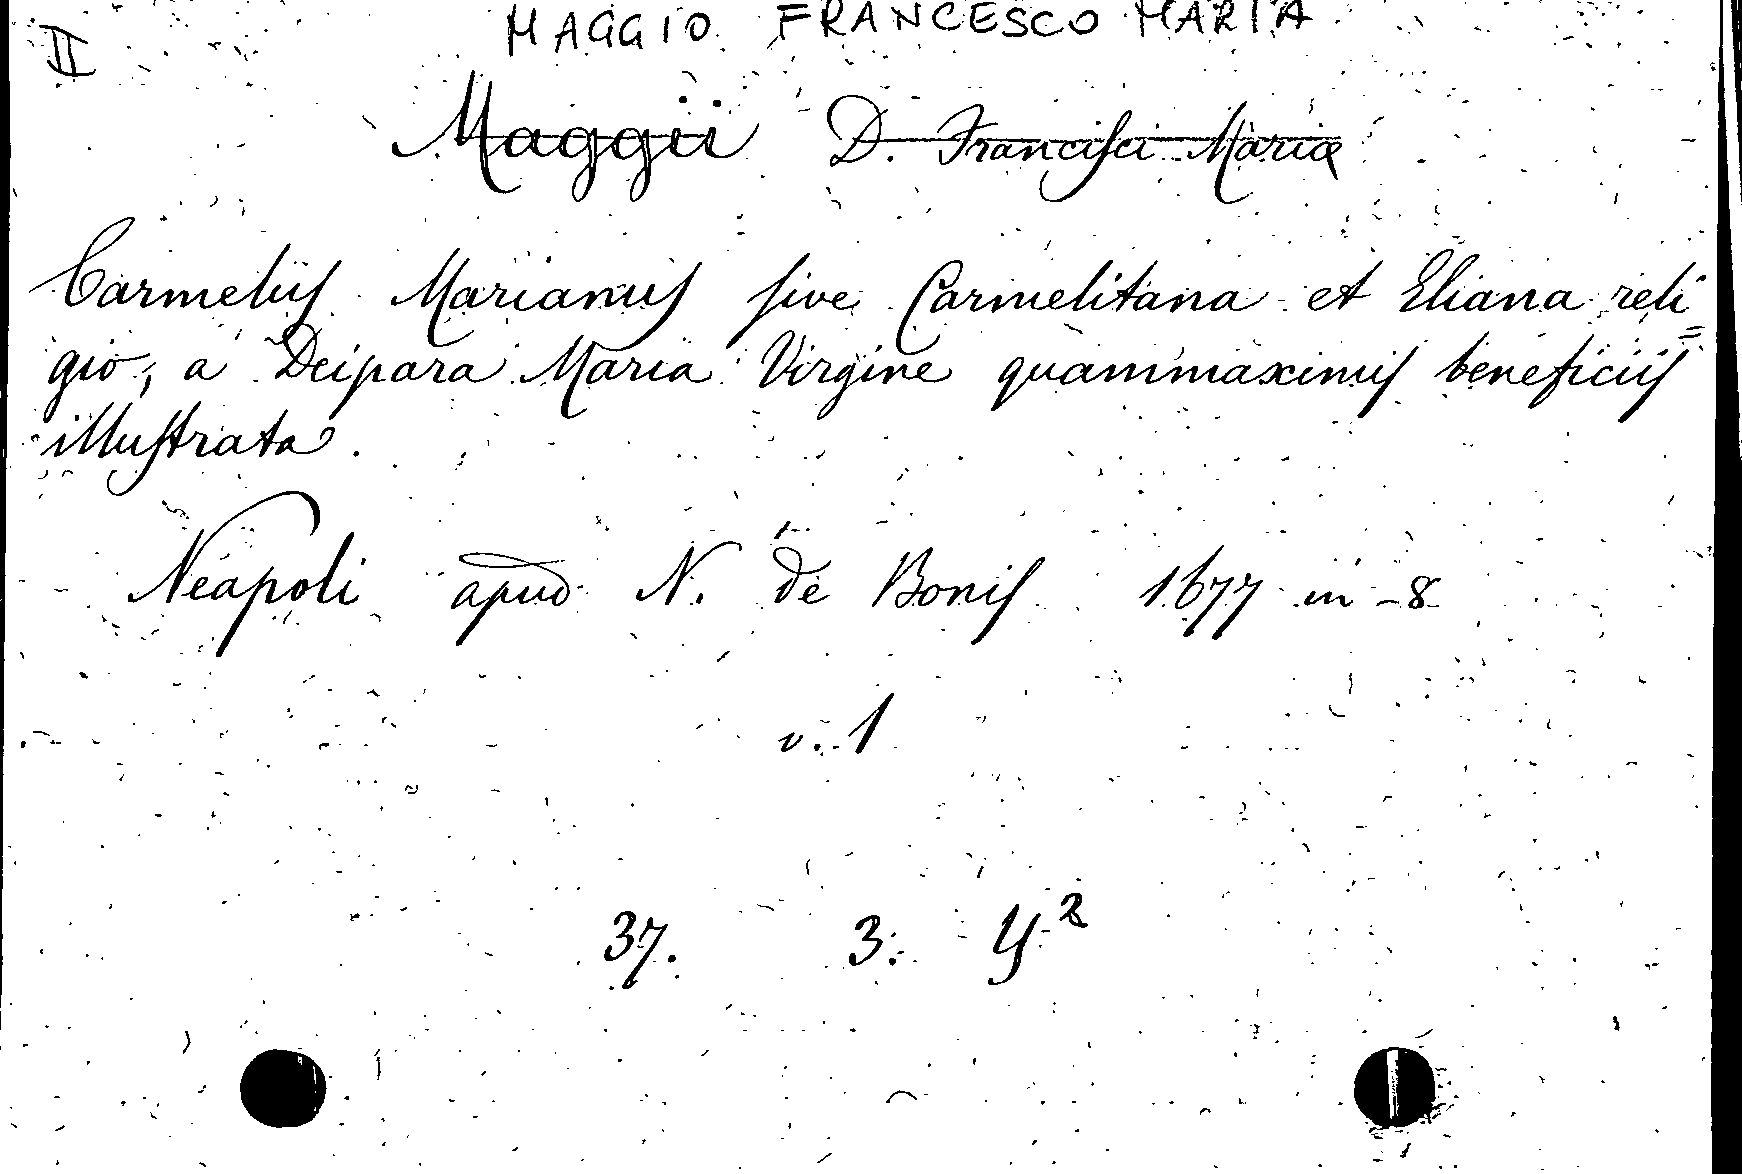 II
MAGGIO FRANCESCO MARIA
Maggii D. Francisci Mariæ
Carmelus Marianus sive Carmelitana et Eliana reli=
gio, a Deipara Maria Virgine quammaximis beneficiis
illustrata.
Neapoli apud N. de Bonis 1677 in-8
v. 1
37. 3. Y²